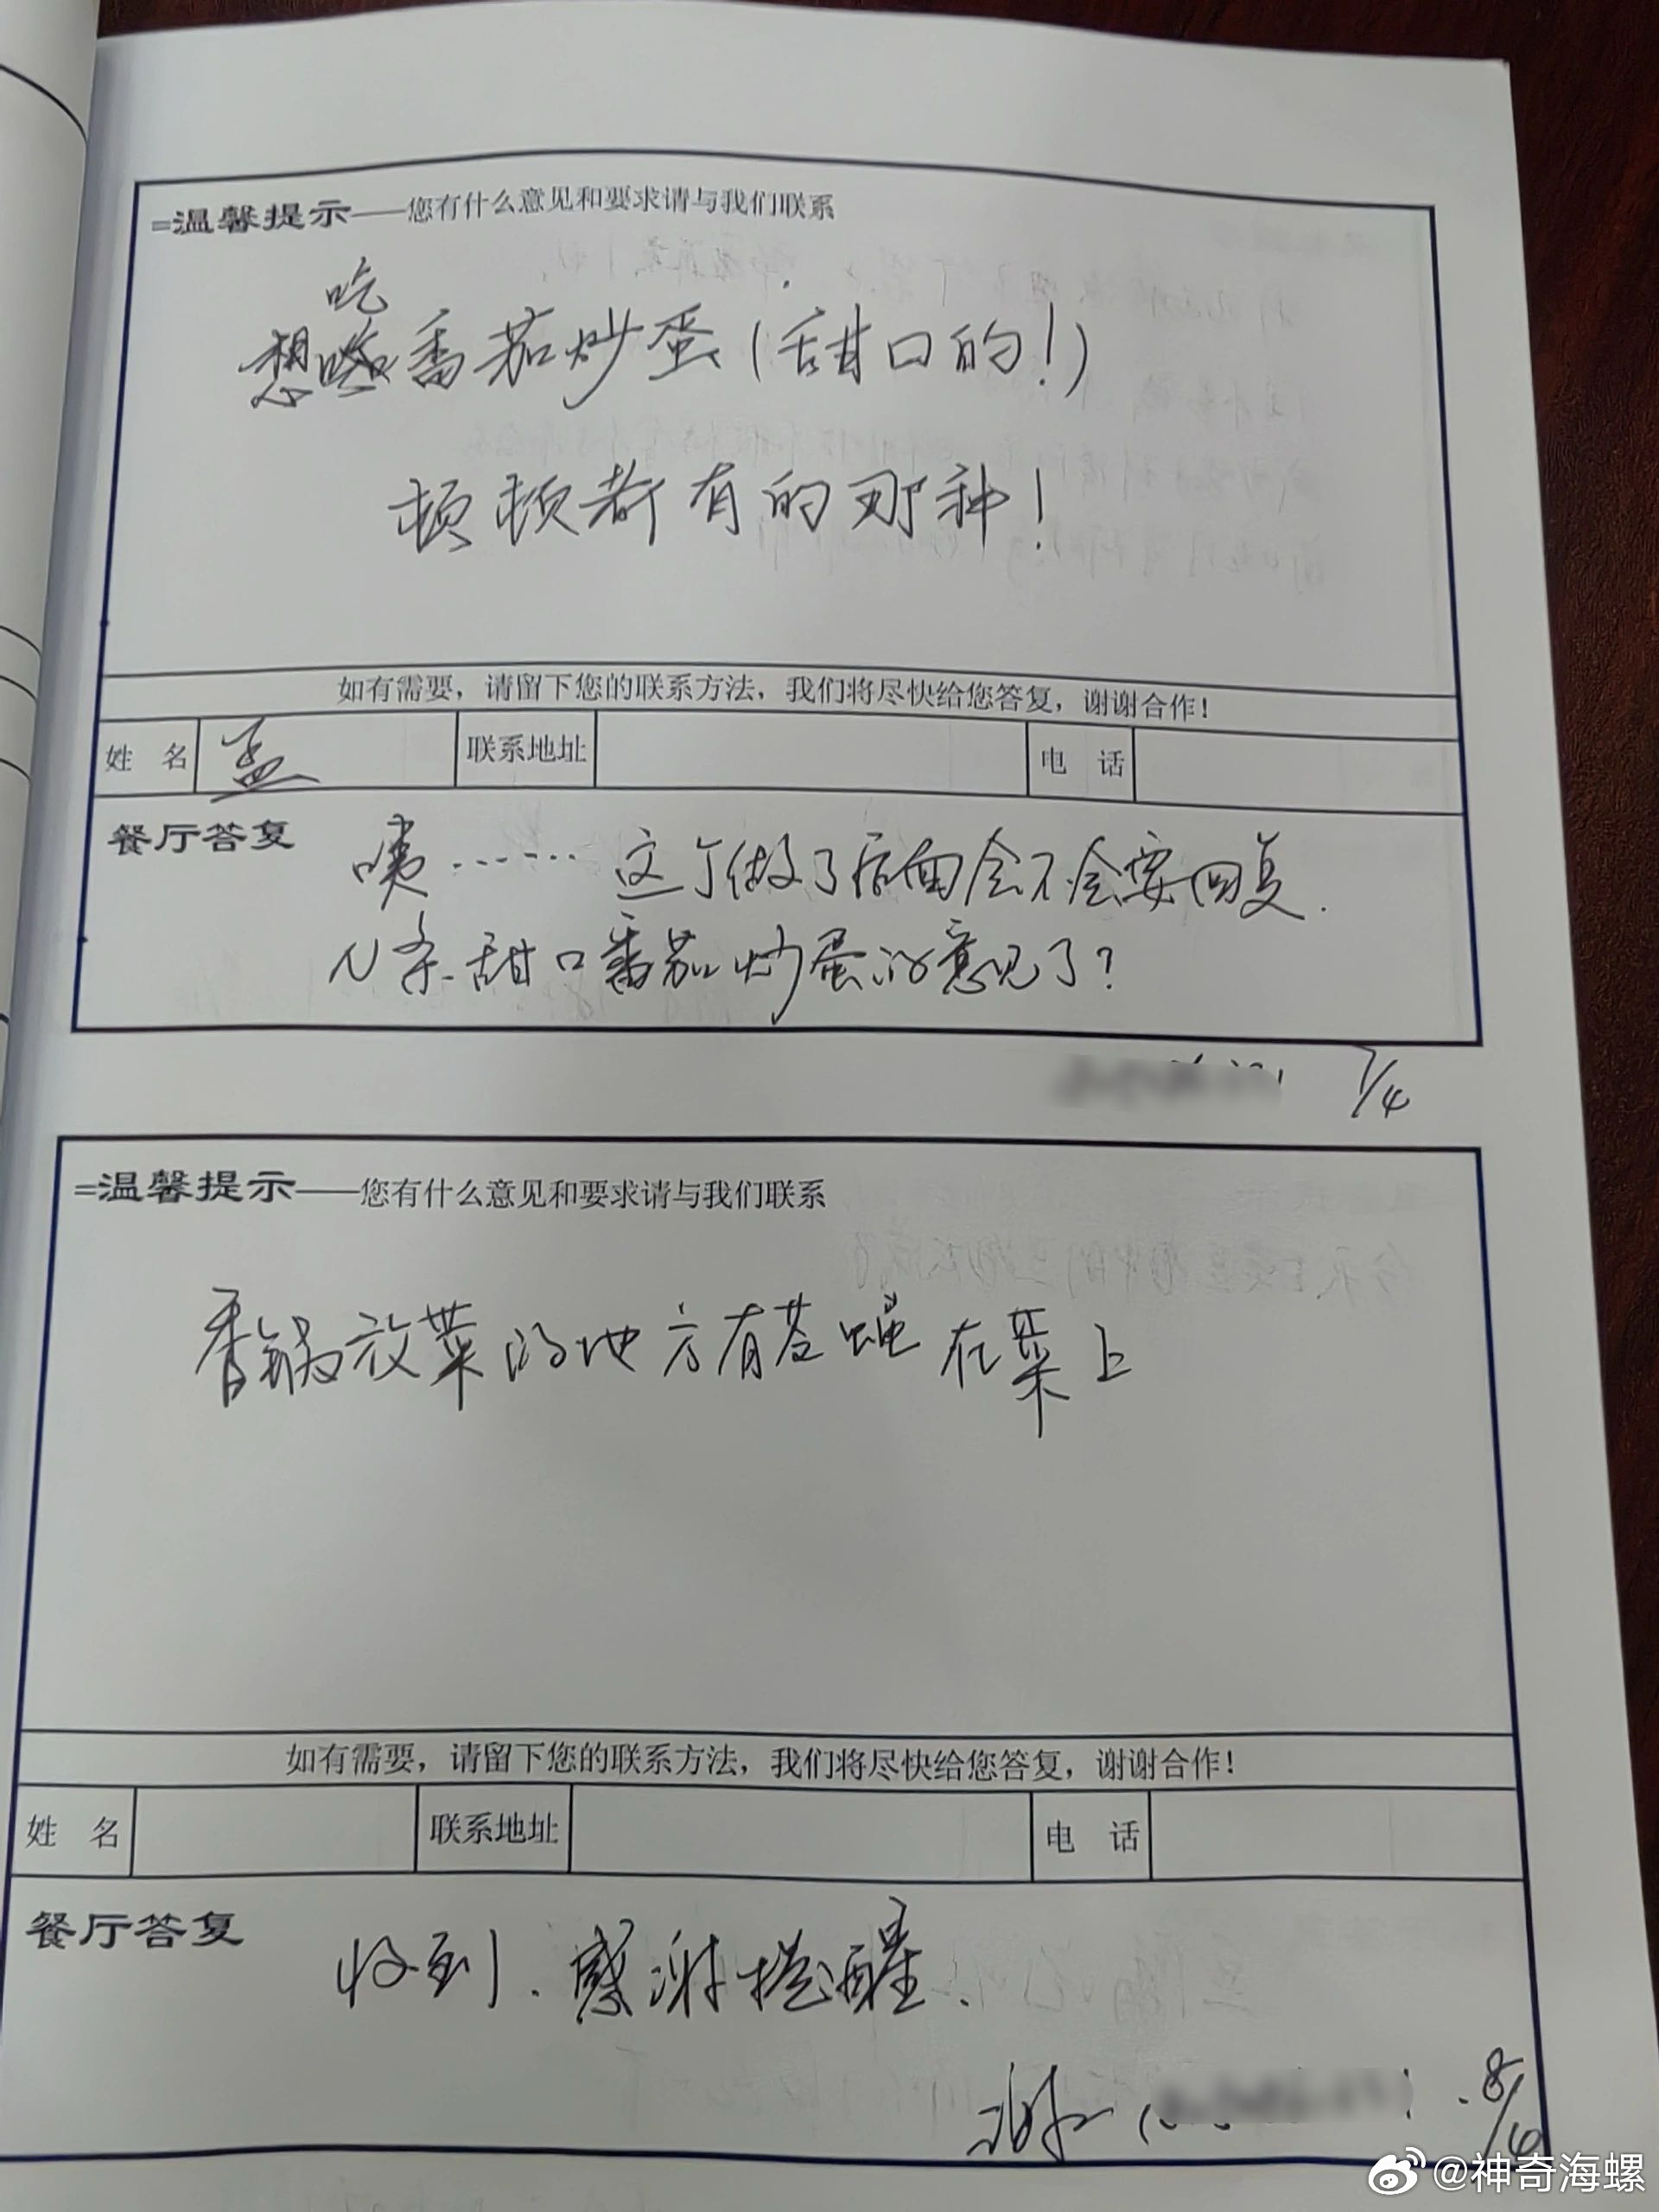 =温馨提示——您有什么意见和要求请与我们联系
吃
想 番茄炒蛋(甜口的!)
顿顿都有的那种!
如有需要，请留下您的联系方法，我们将尽快给您答复，谢谢合作!
姓 名 孟 联系地址 电 话
餐厅答复 咦…… 这个做了后面会不会要回复
N条甜口番茄炒蛋的意见了?
7/4
=温馨提示——您有什么意见和要求请与我们联系
香锅放菜的地方有苍蝇在菜上
如有需要，请留下您的联系方法，我们将尽快给您答复，谢谢合作!
姓 名 联系地址 电 话
餐厅答复 收到.感谢提醒.
8/4
@神奇海螺